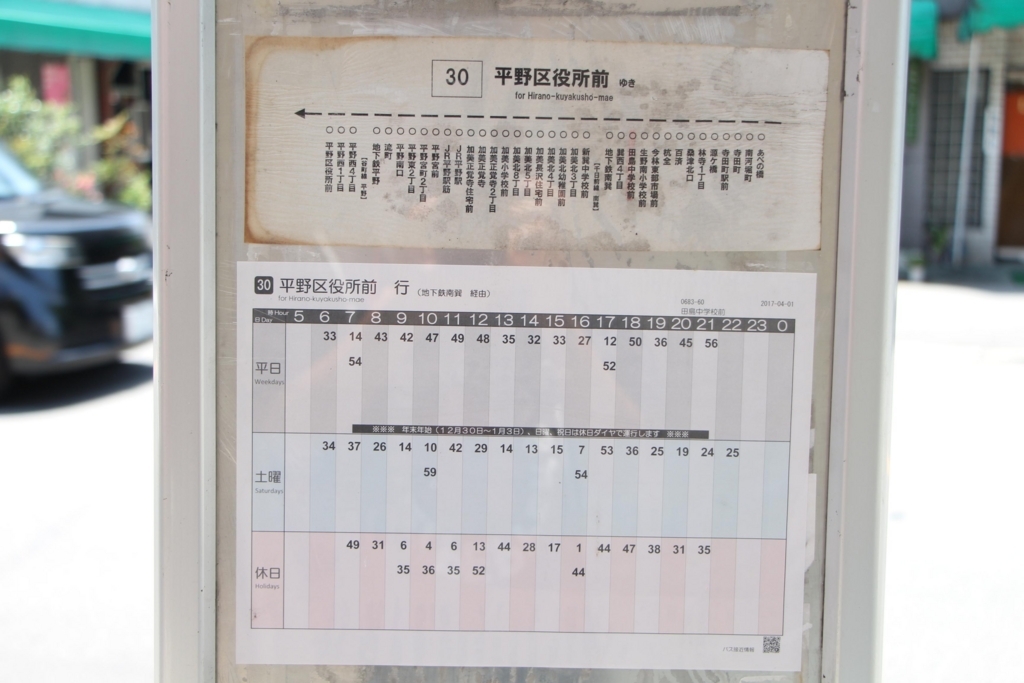 30 平野区役所前 ゆき
for Hirano-kuyakusho-mae
あべの橋
南河堀町
寺田町
寺田町駅前
源ケ橋
林寺1丁目
桑津北口
百済
杭全
今林東部市場前
生野南小学校前
田島中学校前
巽西4丁目
地下鉄南巽
新巽中学校前
加美北3丁目
加美北幼稚園前
加美北4丁目
加美長沢住宅前
加美北5丁目
加美北8丁目
加美小学校前
加美正覚寺2丁目
加美正覚寺
加美正覚寺住宅前
JR平野駅
JR平野駅筋
平野宮前
平野宮町2丁目
平野東2丁目
平野南口
流町
地下鉄平野
【谷町線 平野】
平野西4丁目
平野西1丁目
平野区役所前
30 平野区役所前 行 (地下鉄南巽 経由)
for Hirano-kuyakusho-mae
0683-60 2017-04-01
田島中学校前
時 Hour 5 6 7 8 9 10 11 12 13 14 15 16 17 18 19 20 21 22 23 0
日 Day
平日
Weekdays
33 14 43 42 47 49 48 35 32 33 27 12 50 36 45 56
54 52
※※※ 年末年始(12月30日~1月3日)、日曜、祝日は休日ダイヤで運行します ※※※
土曜
Saturdays
34 37 26 14 10 42 29 14 13 15 7 53 36 25 19 24 25
59 54
休日
Holidays
49 31 6 4 6 13 44 28 17 1 44 47 38 31 35
35 36 35 52 44
バス接近情報